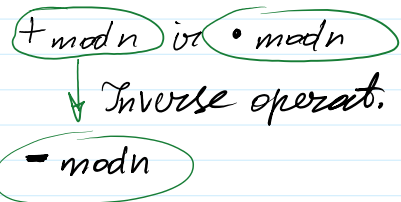 + mod n ir • mod n
Inverse operat.
- mod n